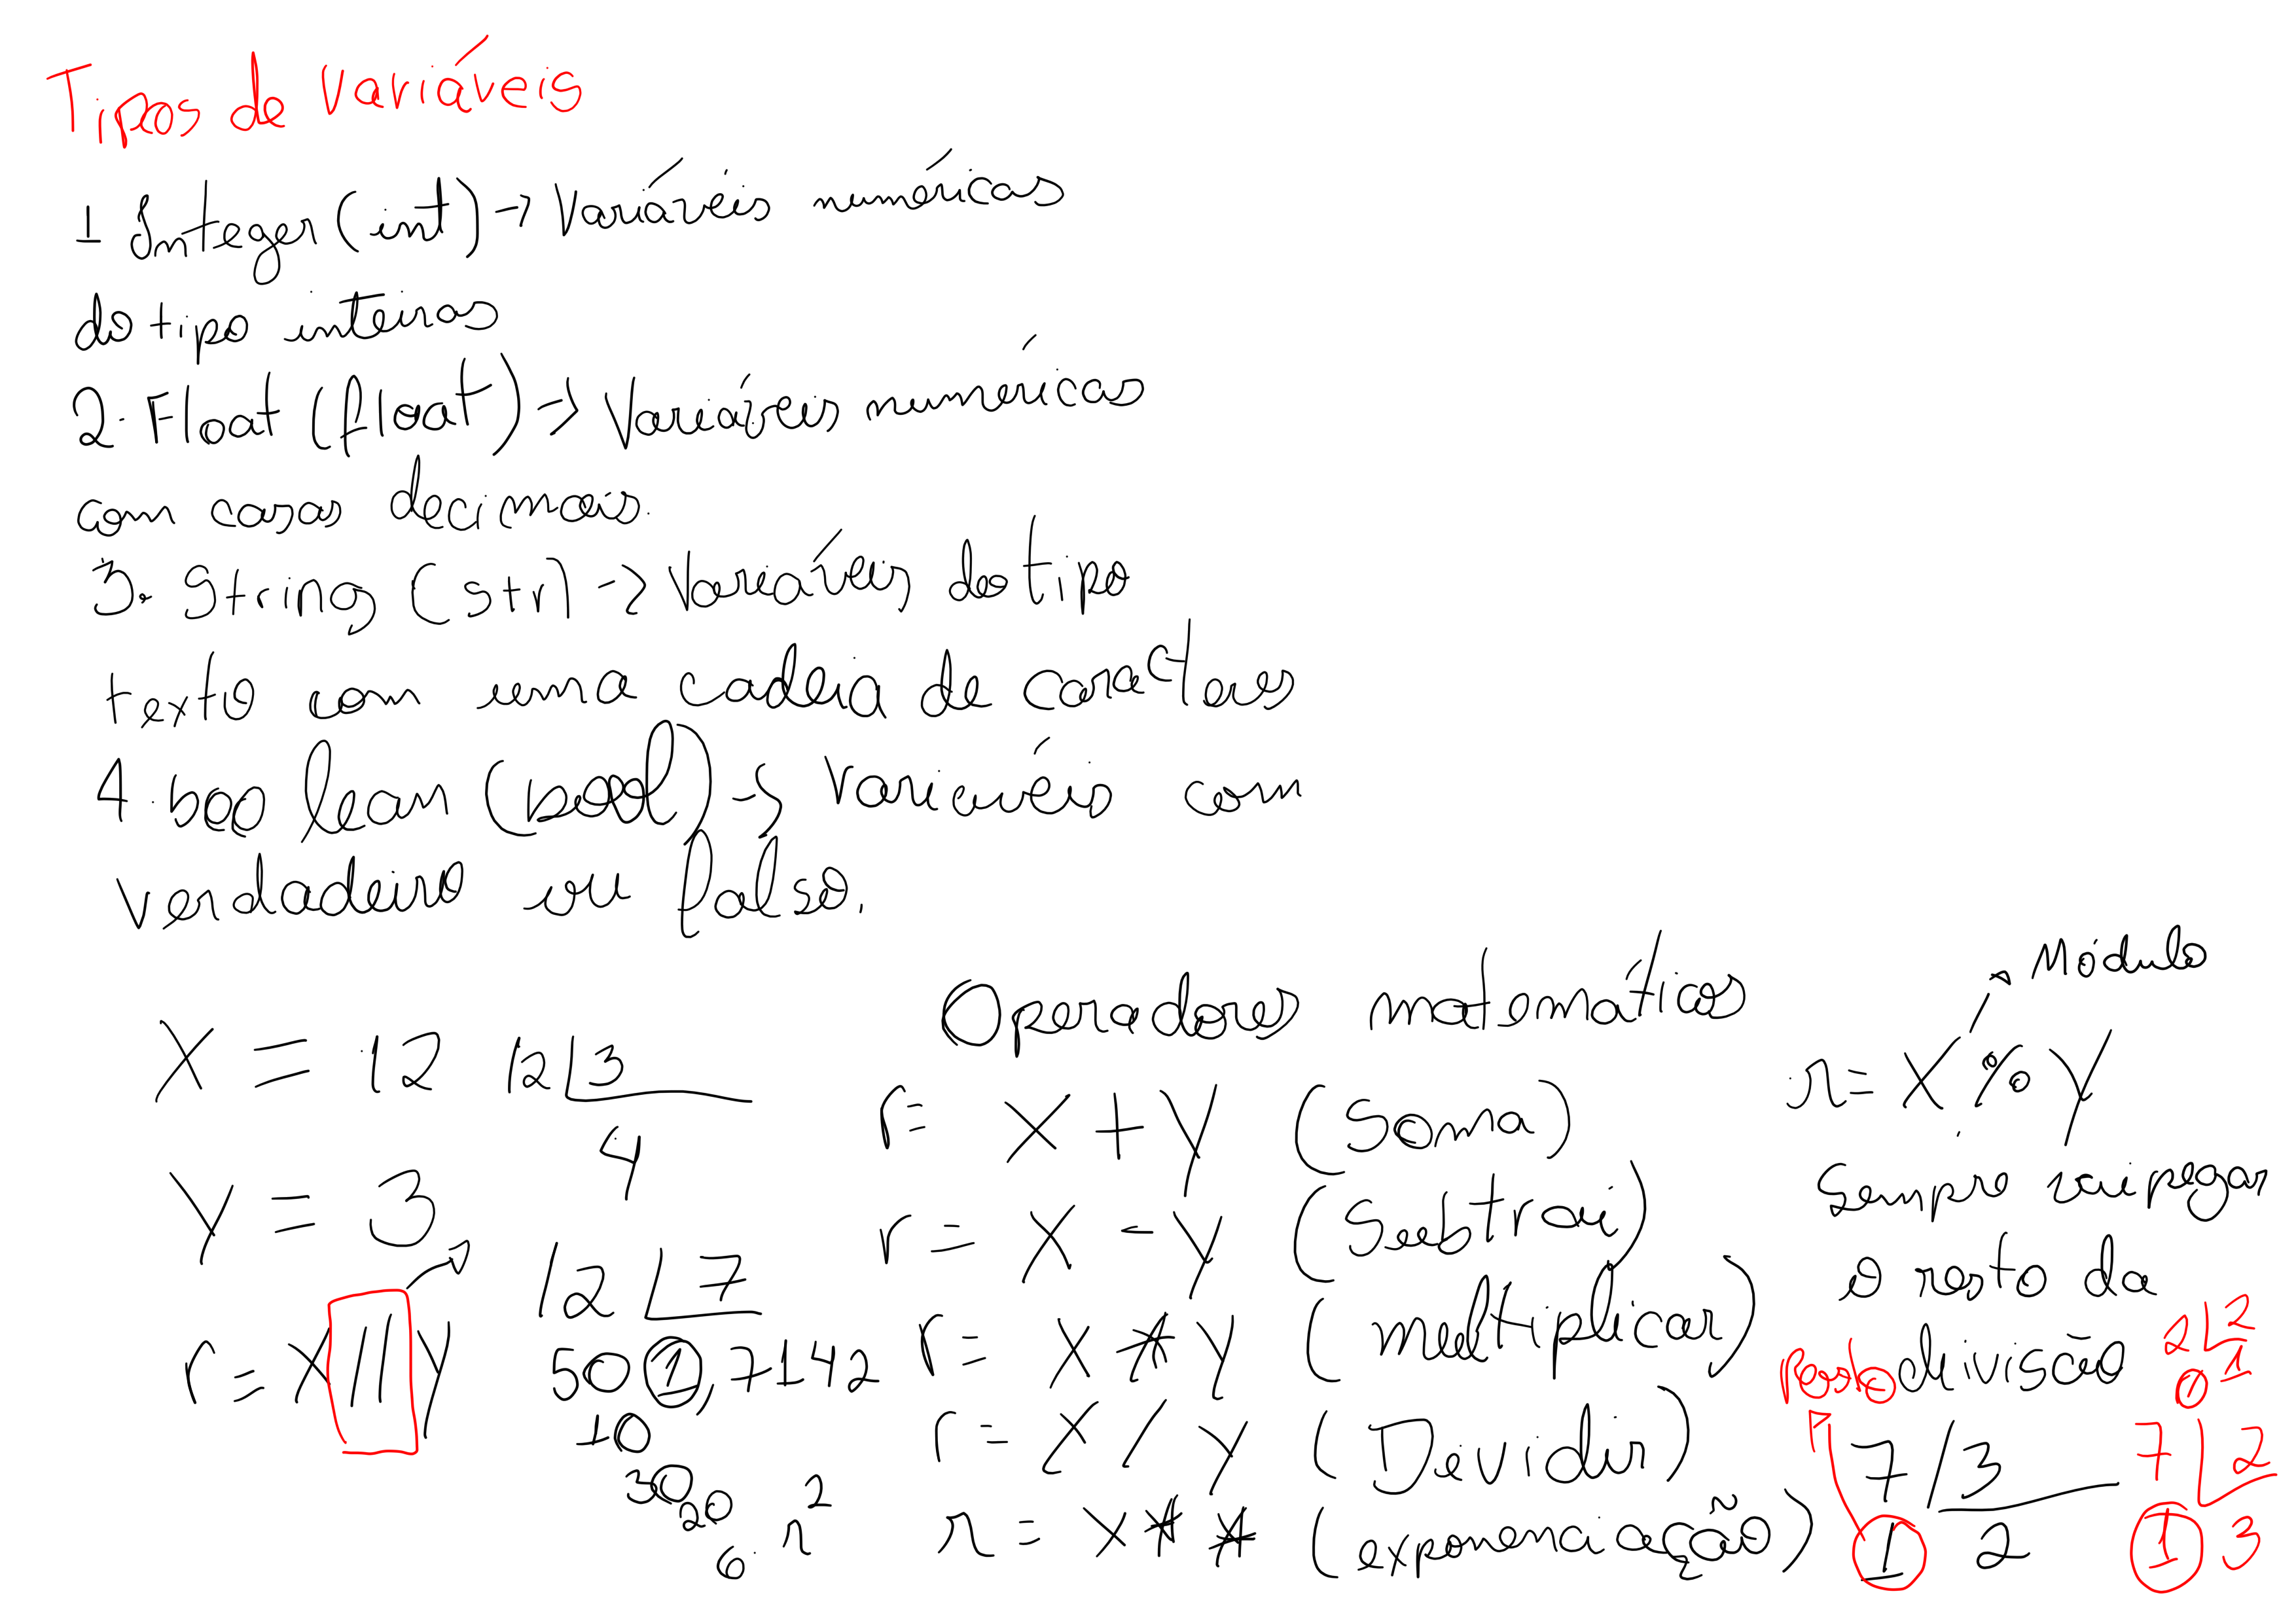 Tipos de Variáveis
1 Integer (int) -> Variáveis numéricas
do tipo inteiros
2. Float (float) -> Variáveis numéricas
com casas decimais.
3. String (str) -> Variáveis do tipo
texto com uma cadeia de caracteres
4. boolean (bool) -> Variavéis com
verdadeiro ou falso.
X = 12
12 3
4
Y = 3
r = X // Y
12 7
50 1,7142
10
30
20
6
r²
Operadores matemáticos
r = X + Y (Soma)
r = X - Y (Subtrai)
r = X * Y (multiplicar)
r = X / Y (Dividir)
r = X ** (exponenciação)
Módulo
r = X % Y
Sempre vai pegar
o resto da
divisão
Resto
2 2
0 1
7 3
1 2
7 2
1 3